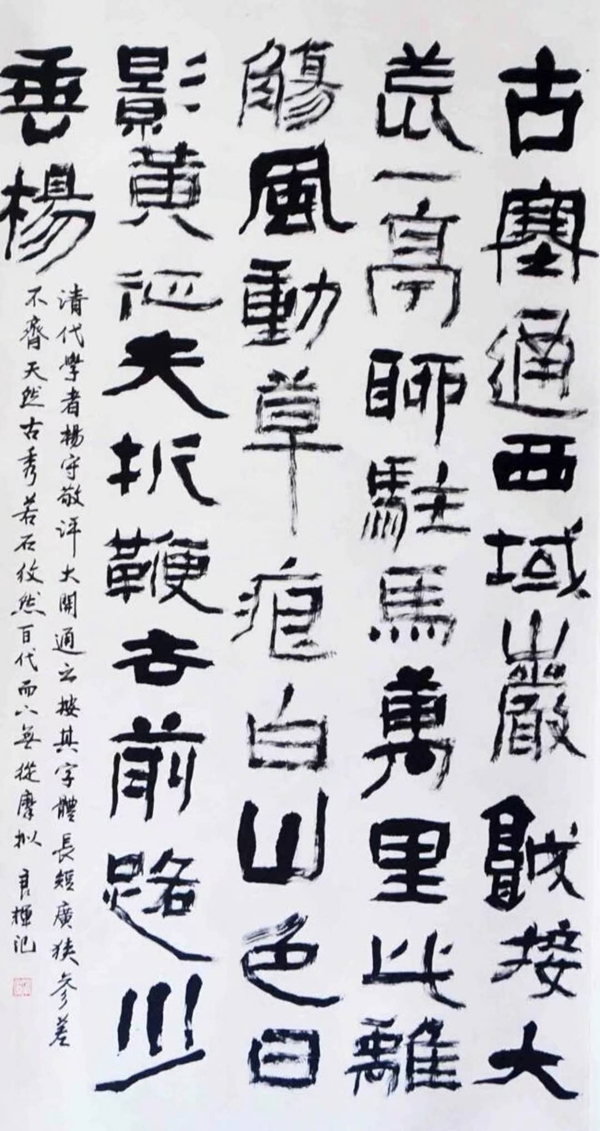 古塞通西域巖城接大
荒一亭聊駐馬萬里此離
觴風動草痕白山色日
影黃征夫折鞭去前路少
垂楊
清代學者楊守敬評大開通云按其字體長短廣狹參差
不齊天然古秀若石紋然百代而下無從摩擬 良輝記